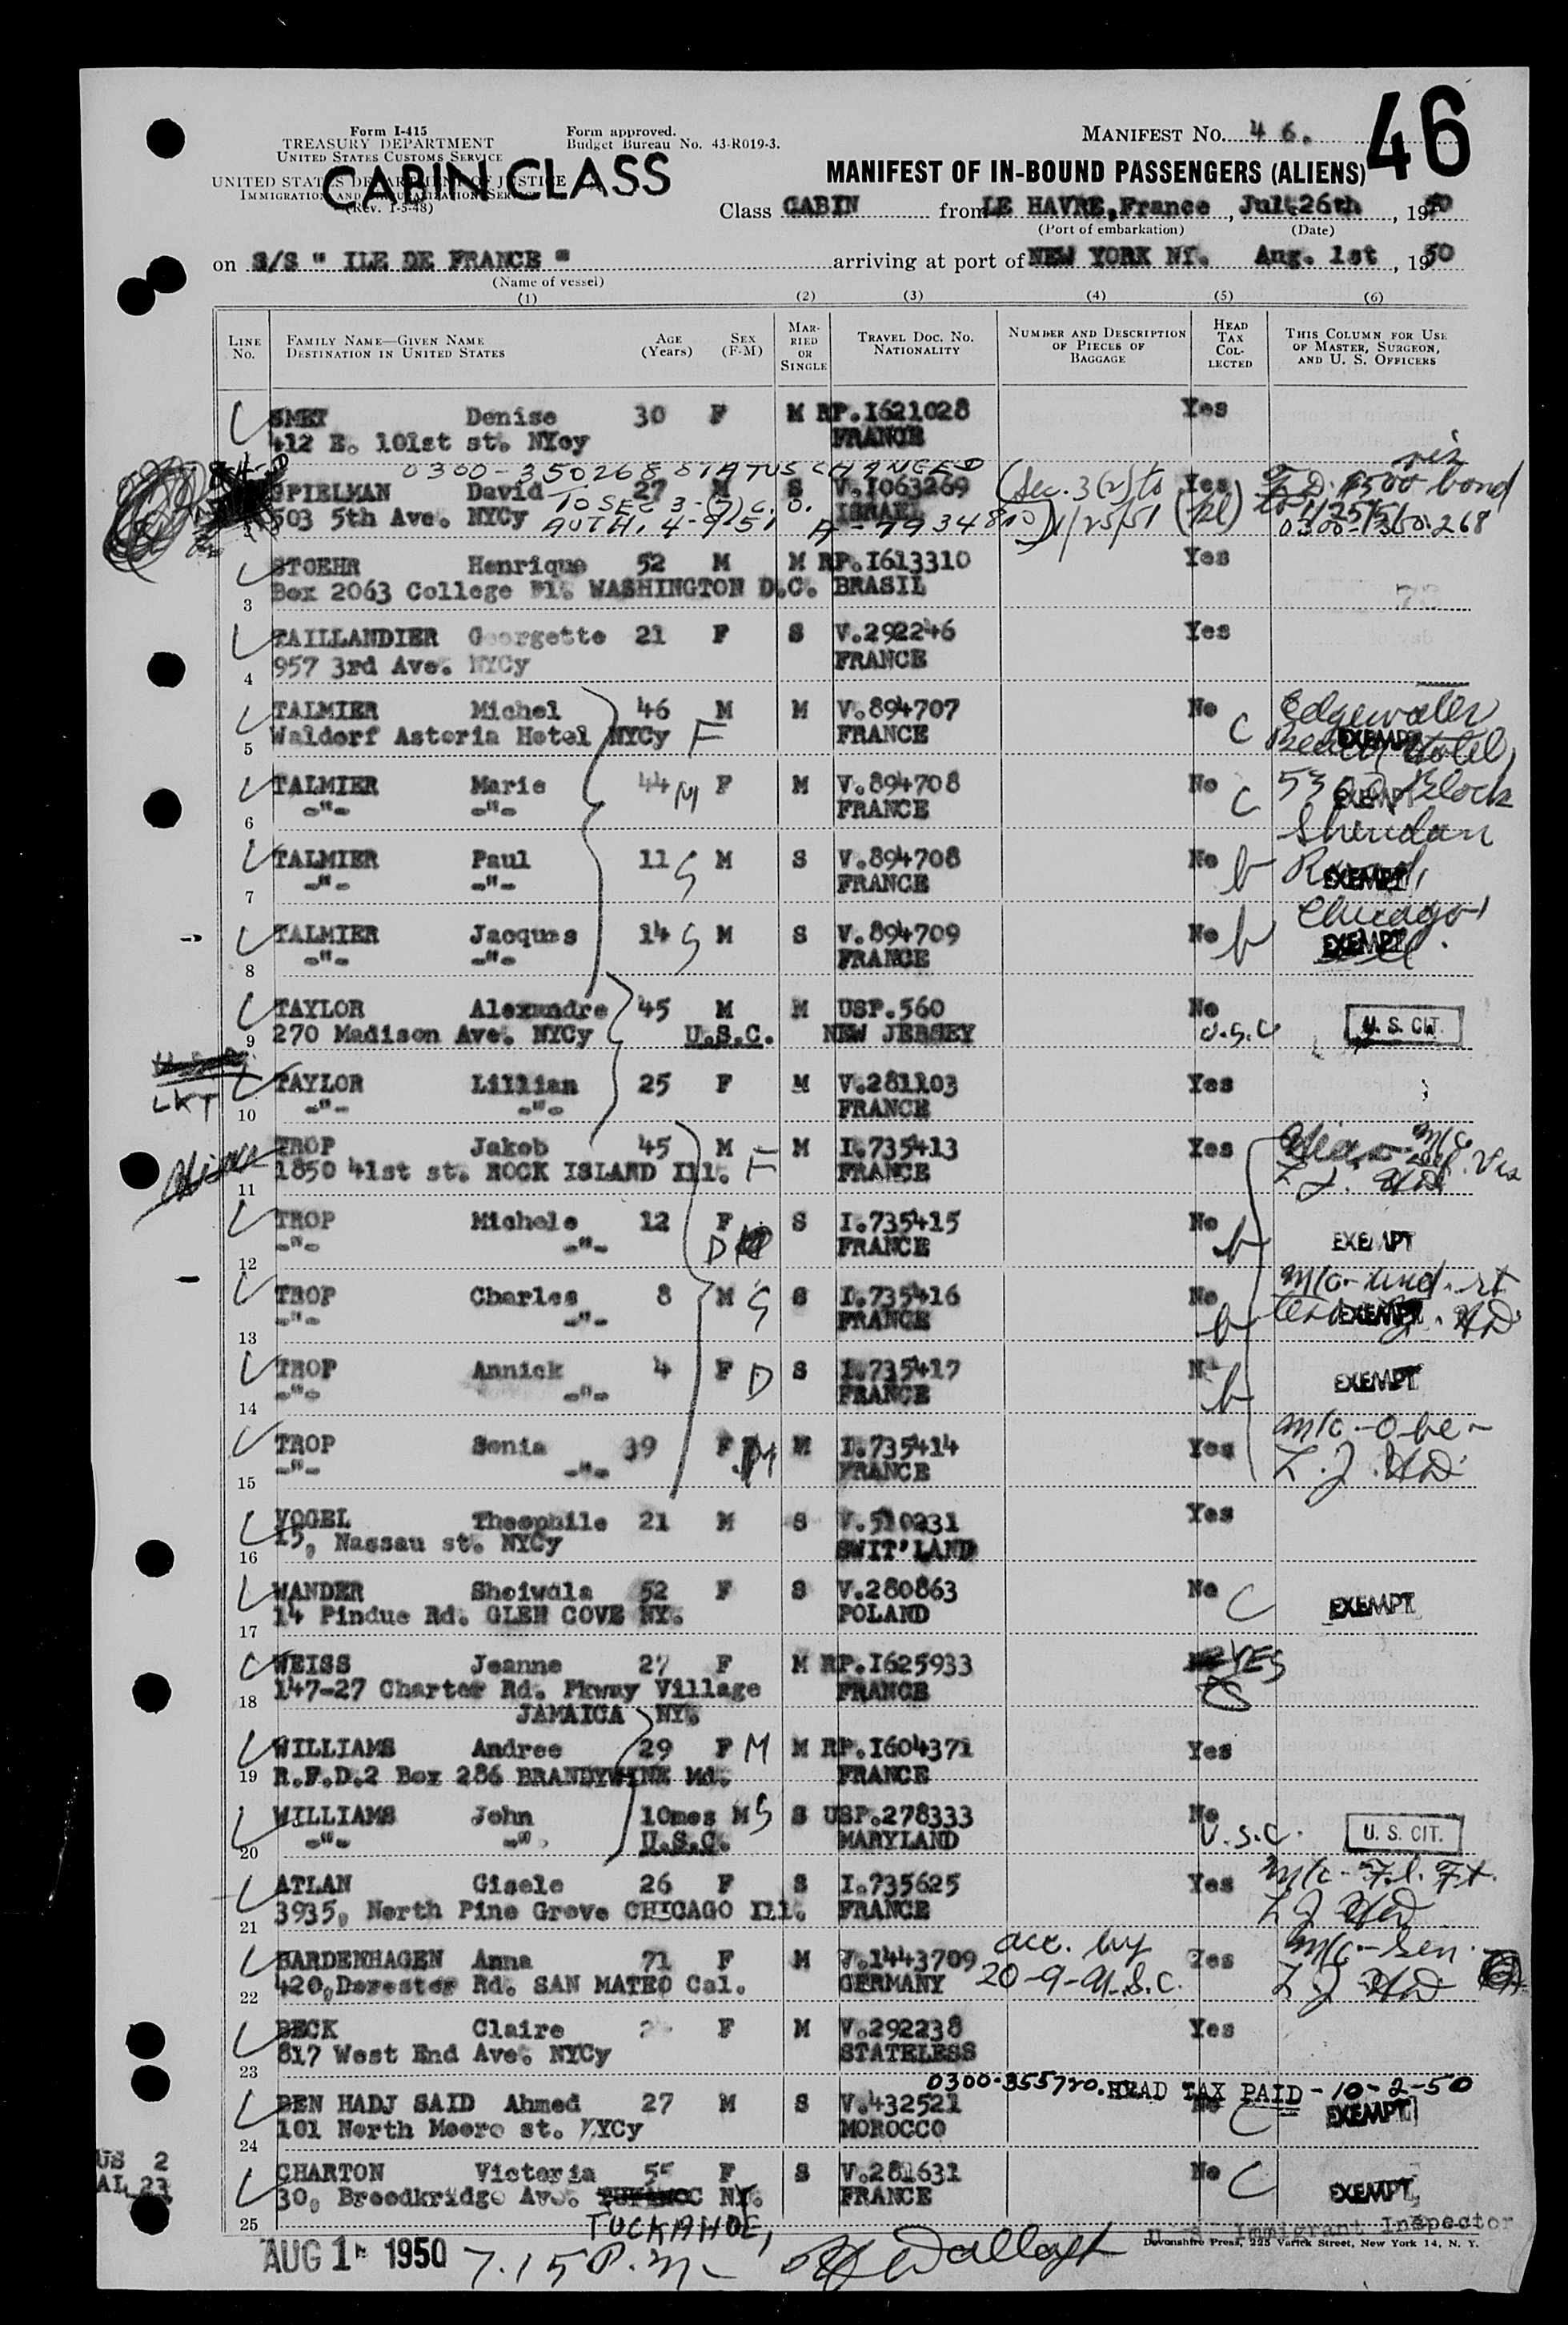 46
Form I-415
TREASURY DEPARTMENT
UNITED STATES CUSTOMS SERVICE
UNITED STATES DEPARTMENT OF JUSTICE
IMMIGRATION AND NATURALIZATION SERVICE
(Rev. 1-5-48)
Form approved.
Budget Bureau No. 43-R019-3.
CABIN CLASS
MANIFEST NO. 46.
MANIFEST OF IN-BOUND PASSENGERS (ALIENS)
Class CABIN from LE HAVRE, France, Jul. 26th, 1950
(Port of embarkation) (Date)
on S/S " ILE DE FRANCE " arriving at port of NEW YORK NY. Aug. 1st, 1950
(Name of vessel)
(1) (2) (3) (4) (5) (6)
LINE No. FAMILY NAME—GIVEN NAME DESTINATION IN UNITED STATES AGE (Years) SEX (F-M) MARRIED OR SINGLE TRAVEL DOC. NO. NATIONALITY NUMBER AND DESCRIPTION OF PIECES OF BAGGAGE HEAD TAX COLLECTED THIS COLUMN FOR USE OF MASTER, SURGEON, AND U. S. OFFICERS
SMET Denise 30 F M RP.I621028 Yes
412 E. 101st st. NYcy FRANCE
0300-350268 STATUS CHANGED
SPIELMAN David 27 M S V.I063269 (Sec. 3(2) to Yes $500 bond
TO SEC 3-(7) C.O.
503 5th Ave. NYCy ISRAEL 1/25/51
AUTH. 4-9-51 A-7934810 0300-350268
STOEHR Henrique 52 M M RP.I613310 Yes
3 Box 2063 College Pl. WASHINGTON D.C. BRASIL
TAILLANDIER Georgette 21 F S V.292246 Yes
957 3rd Ave. NYCy FRANCE
4
TALMIER Michel 46 M M V.894707 No Edgewater
5 Waldorf Astoria Hotel NYCy F FRANCE C Beach Hotel, EXEMPT
TALMIER Marie 44 M F M V.894708 No 5300 Block
6 -"- -"- FRANCE C EXEMPT
Sheridan
TALMIER Paul 11 S M S V.894708 No b Road,
7 -"- -"- FRANCE EXEMPT
Chicago,
TALMIER Jacques 14 S M S V.894709 No b
8 -"- -"- FRANCE EXEMPT Ill.
TAYLOR Alexandre 45 M M USP.560 No
9 270 Madison Ave. NYCy U.S.C. NEW JERSEY U.S.C U. S. CIT.
LKT
TAYLOR Lillian 25 F M V.281103 Yes
10 -"- -"- FRANCE
TROP Jakob 45 M M I.735413 Yes
11 1850 41st st. ROCK ISLAND Ill. F FRANCE
TROP Michele 12 F S I.735415 No
12 -"- -"- D FRANCE b EXEMPT
TROP Charles 8 M S S I.735416 No
13 -"- -"- FRANCE b EXEMPT
TROP Annick 4 F D S I.735417
14 -"- -"- FRANCE b EXEMPT
TROP Sonia 39 F M M I.735414 Yes
15 -"- -"- FRANCE
VOGEL Theophile 21 M S V.510231 Yes
16 15, Nassau st. NYCy SWIT'LAND
WANDER Sheiwala 52 F S V.280863 No C
17 14 Pindue Rd. GLEN COVE NY. POLAND EXEMPT
WEISS Jeanne 27 F M RP.I625933 YES
18 147-27 Charter Rd. Pkway Village FRANCE
JAMAICA NY.
WILLIAMS Andree 29 F M M RP.I604371 Yes
19 R.F.D.2 Box 286 BRANDYWINE Md. FRANCE
WILLIAMS John 10mos M S S USP.278333 No
20 -"- -"- U.S.C. MARYLAND U.S.C. U. S. CIT.
ATLAN Gisele 26 F S I.735625 Yes
21 3935, North Pine Grove CHICAGO Ill. FRANCE
BARDENHAGEN Anna 71 F M V.1443709 acc. by Yes
22 420, Rd. SAN MATEO Cal. GERMANY 20-9-U.S.C.
BECK Claire F M V.292238 Yes
23 817 West End Ave. NYCy STATELESS
0300-355720. HEAD TAX PAID - 10-2-50
BEN HADJ SAID Ahmed 27 M S V.432521 No C EXEMPT
24 101 North Moore st. NYCy MOROCCO
US 2
AL 23
CHARTON Victoria 55 F S V.281631 No C
25 30, Breedkridge Ave. NY. FRANCE EXEMPT
TUCKAHOE,
AUG 1 1950 7.15 P.M. U. S. Immigrant Inspector
Devonshire Press, 225 Varick Street, New York 14, N. Y.